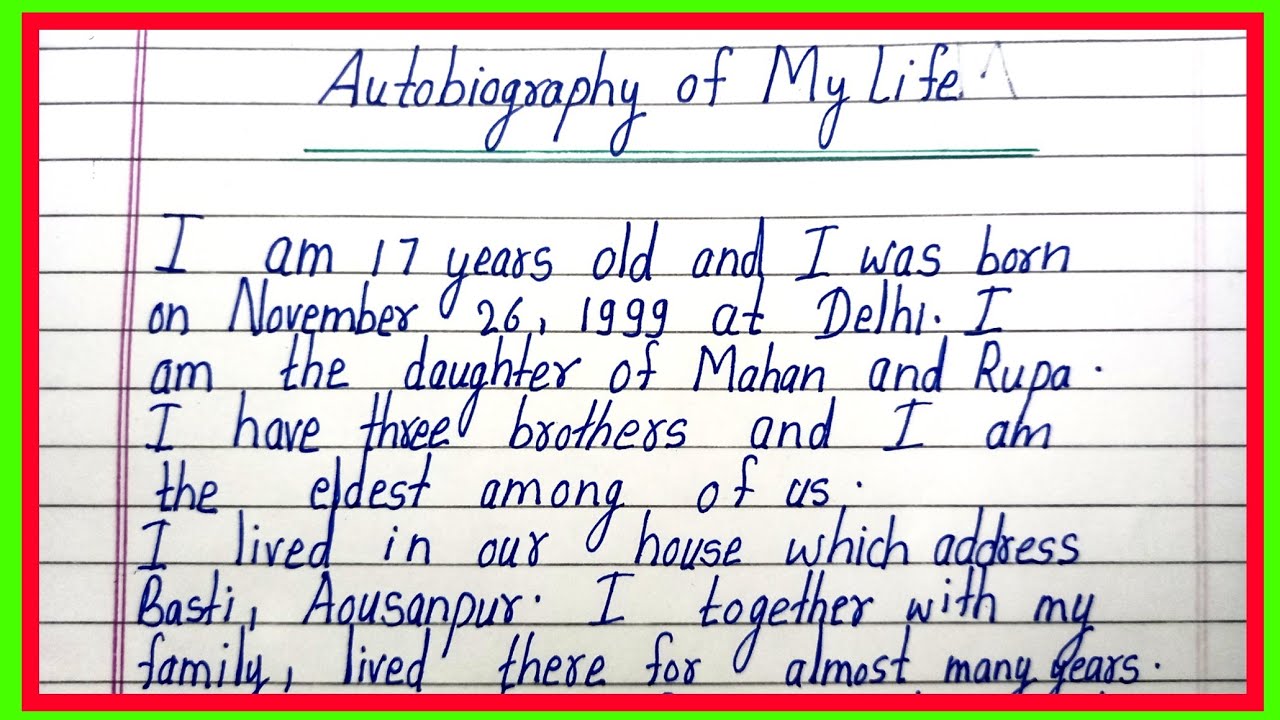 Autobiography of My Life.
I am 17 years old and I was born
on November 26, 1999 at Delhi. I
am the daughter of Mahan and Rupa.
I have three brothers and I am
the eldest among of us.
I lived in our house which address
Basti, Aousanpur. I together with my
family, lived there for almost many years.